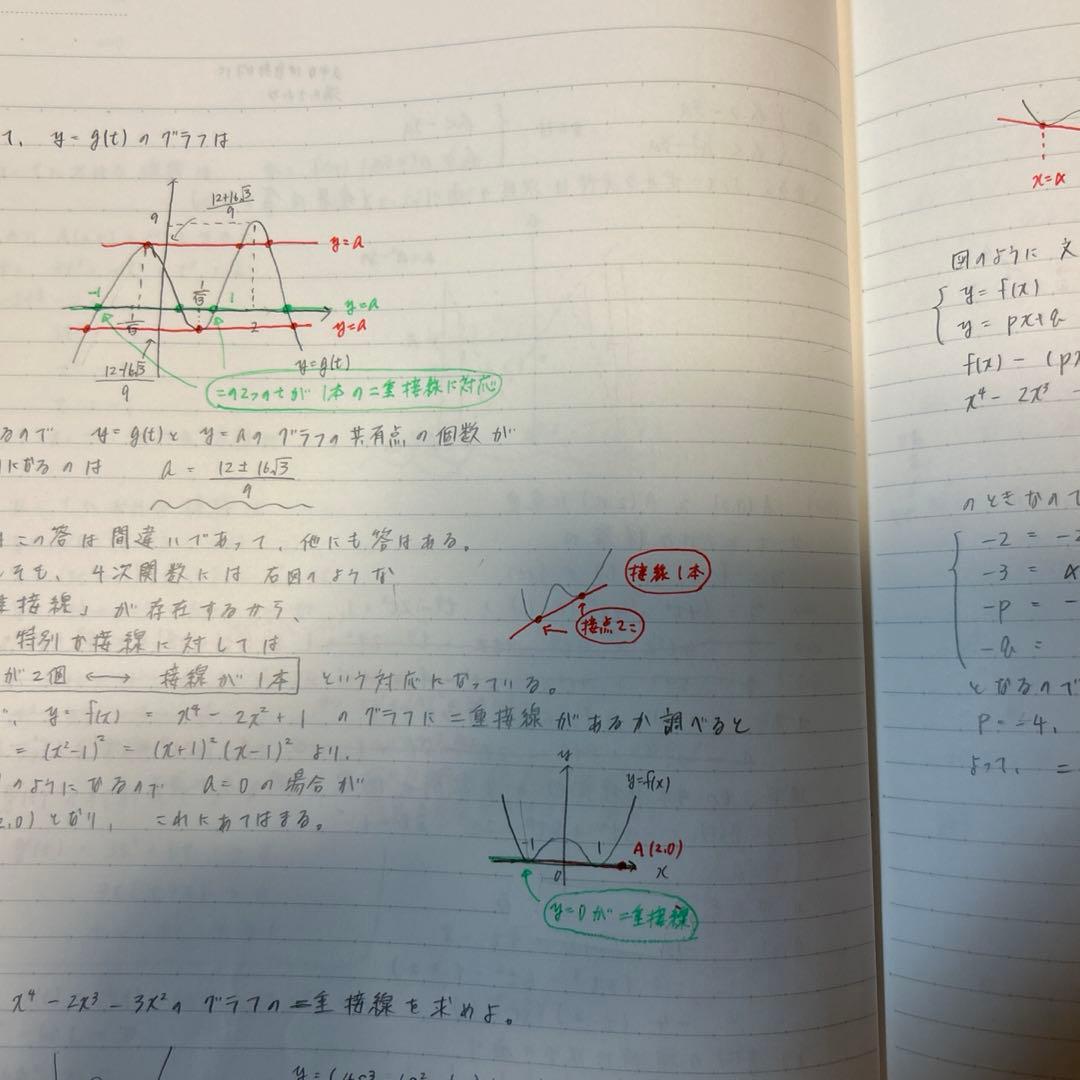 て、 y=g(t) のグラフは
9
12+16√3/9
y=a
-1
1/√3
1
y=a
-1/√3
2
y=a
12-16√3/9
y=g(t)
この2つのtが1本の二重接線に対応
るので y=g(t)と y=aのグラフの共有点の個数が
になるのは a = 12±16√3/9
この答は間違いであって、他にも答はある。
そも、4次関数には右図のような
重接線」が存在するから、
特別な接線に対しては
が2個 ⟷ 接線が1本 という対応になっている。
接線1本
接点2こ
y=f(x) = x⁴-2x²+1 のグラフに二重接線があるか調べると
= (x²-1)² = (x+1)²(x-1)² より、
のようになるので a=0の場合が
2,0) となり、 これにあてはまる。
y
y=f(x)
-1
1
A(2,0)
0
x
y=0が二重接線
x⁴-2x³-3x²のグラフの二重接線を求めよ。
x=α
図のように 文
y=f(x)
y=px+q
f(x)-(px
x⁴-2x³-
のときなので
-2 = -2
-3 = α
-p = -
-q =
となるので
p=-4,
よって、 =